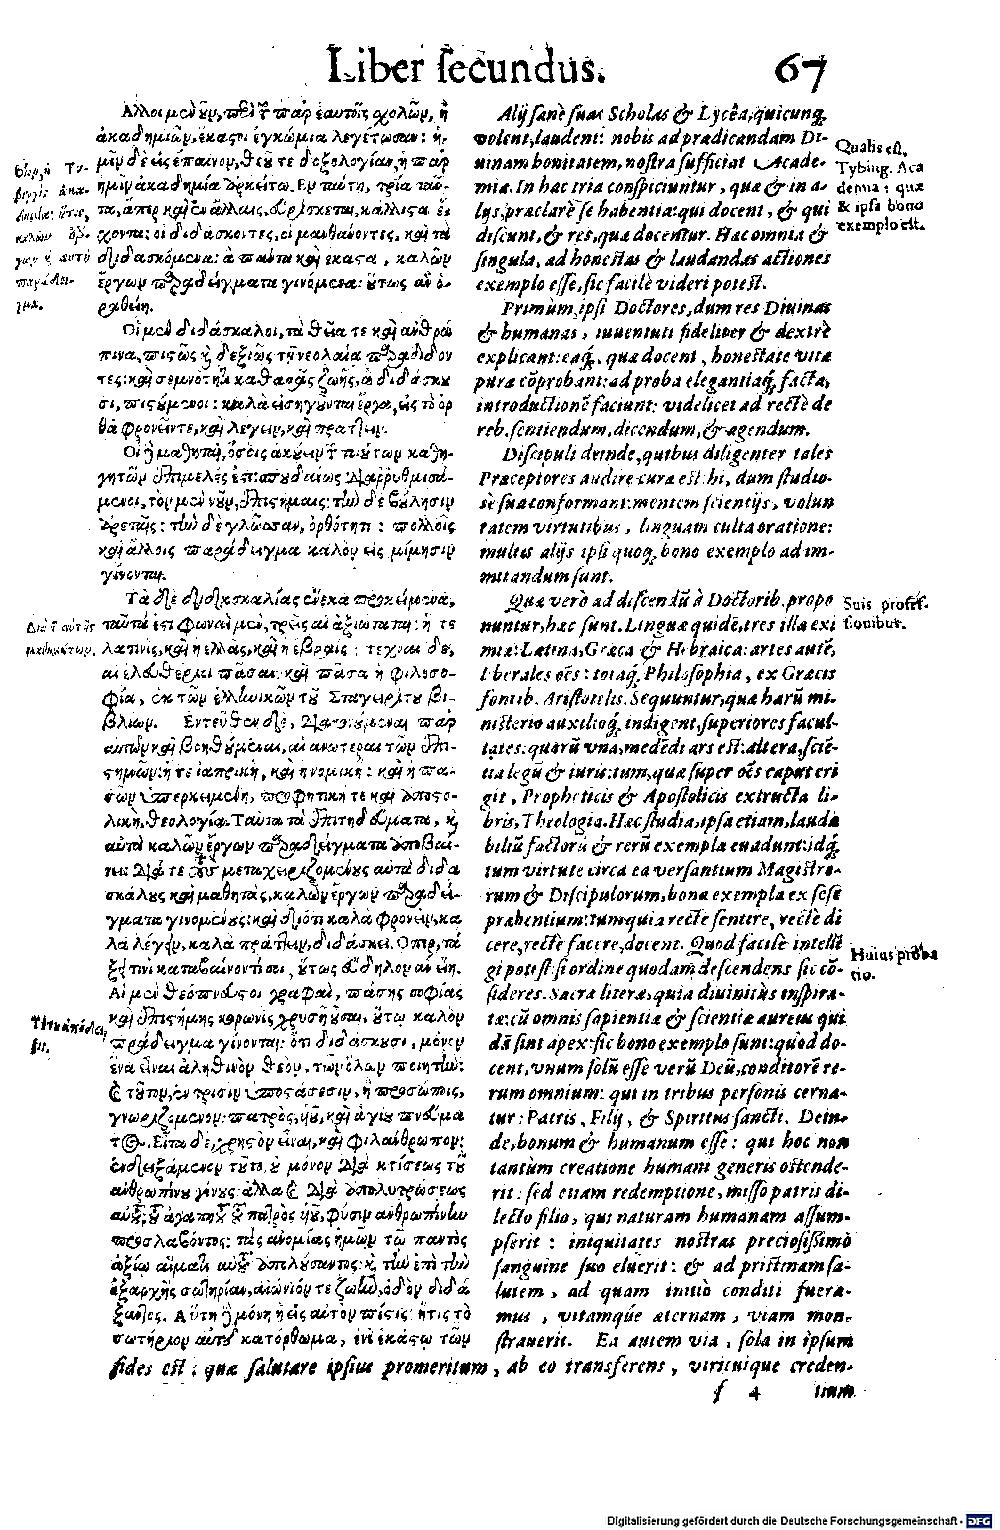 Liber secundus. 67
Ἄλλοι μὲν οὖν, περὶ τῶν παρ᾽ ἑαυτοῖς σχολῶν, ἢ
ἀκαδημιῶν, ἕκαστοι ἐγκώμια λεγέτωσαν: ἡ-
μῖν δὲ εἰς ἔπαινον, θεοῦ τε δοξολογίαν, ἡ παρ᾽
ἡμῖν ἀκαδημία ἀρκείτω. Ἐν ταύτῃ, τρία ταῦ-
τα, ἅπερ καὶ ἐν ἄλλαις, εὑρίσκεται, κάλλιστα ἔ-
χοντα: οἱ διδάσκοντες, οἱ μανθάνοντες, καὶ τὰ
διδασκόμενα: ἃ πάντα καὶ ἕκαστα, καλῶν
ἔργων παραδείγματα γινόμενα: οὕτως ἂν ὁ-
ραθείη.
Οἱ μὲν διδάσκαλοι, τὰ θεῖά τε καὶ ἀνθρώ
πινα, πιστῶς καὶ δεξιῶς τῇ νεολαίᾳ παραδιδόν
τες: καὶ σεμνότητι καθαρᾶς ζωῆς, ἃ διδάσκου
σι, πιστούμενοι: καλὰ εἰσηγοῦνται ἔργα, εἰς τὸ ὀρ
θὰ φρονεῖν τε, καὶ λέγειν, καὶ πράττειν.
Οἱ δὲ μαθηταὶ, ὅσοις ἀκούειν τῶν τοιούτων καθη-
γητῶν ἐπιμελές ἐστι: σπουδαίως διαρρυθμισά-
μενοι, τὸν μὲν νοῦν, ἐπιστήμαις: τὴν δὲ βούλησιν
ἀρεταῖς: τὴν δὲ γλῶσσαν, ὀρθότητι: πολλοῖς
καὶ ἄλλοις παράδειγμα καλὸν εἰς μίμησιν
γίνονται.
Τὰ δὲ διδασκαλίας ἕνεκα προκείμενα,
ταῦτά ἐστι φωναὶ μὲν, τρεῖς αἱ ἀξιώταται: ἥ τε
λατινὶς, καὶ ἡ ἑλλὰς, καὶ ἡ ἑβραΐς: τέχναι δὲ,
αἱ ἐλευθέριαι πᾶσαι: καὶ πᾶσα ἡ φιλοσο-
φία, ἐκ τῶν ἑλληνικῶν τοῦ Σταγειρίτου βι-
βλίων. Ἐντεῦθεν δὲ, διακονούμεναι παρ᾽
αὐτῶν καὶ βοηθούμεναι, αἱ ἀνώτεραι τῶν ἐπι-
στημῶν: ἥ τε ἰατρικὴ, καὶ ἡ νομική: καὶ ἡ πα-
σῶν ὑπερκειμένη, προφητική τε καὶ ἀποστο-
λικὴ, θεολογία. Ταῦτα τὰ ἐπιτηδεύματα, καὶ
αὐτὰ καλῶν ἔργων παραδείγματα ἀποβαί-
νει: διά τε τοὺς μεταχειριζομένους αὐτὰ διδα
σκάλους καὶ μαθητὰς, καλῶν ἔργων παραδεί-
γματα γινομένους: καὶ διότι καλὰ φρονεῖν, κα
λὰ λέγειν, καλὰ πράττειν, διδάσκει. Ὅπερ, τά
ξει τινὶ καταβαίνοντί σοι, οὕτως εὔδηλον ἂν εἴη.
Αἱ μὲν θεόπνευστοι γραφαὶ, πάσης σοφίας
καὶ ἐπιστήμης κορωνὶς χρυσῆ οὖσαι, οὕτω καλὸν
παράδειγμα γίνονται: ὅτι διδάσκουσι, μόνον
ἕνα εἶναι ἀληθινὸν θεὸν, τῶν ὅλων ποιητήν:
καὶ τοῦτον, ἐν τρισὶν ὑποστάσεσιν, ἢ προσώποις,
γνωριζόμενον: πατρὸς, υἱοῦ, καὶ ἁγίου πνεύμα
τος. Εἶτα δὲ, χρηστὸν εἶναι, καὶ φιλάνθρωπον:
ἐνδειξάμενον τοῦτο, οὐ μόνον διὰ κτίσεως τοῦ
ἀνθρωπίνου γένους ἀλλὰ καὶ διὰ ἀπολυτρώσεως
αὐτοῦ: τοῦ ἀγαπητοῦ τοῦ πατρὸς υἱοῦ, φύσιν ἀνθρωπίνην
προσλαβόντος: τὰς ἀνομίας ἡμῶν τῷ παντὸς
ἀξίῳ αἵματι αὐτοῦ ἀπολούσαντος: καὶ τὴν ἐπὶ τὴν
ἐξαρχῆς σωτηρίαν, αἰώνιόν τε ζωὴν, ὁδὸν διδά
ξαντος. Αὕτη δὲ μόνη ἡ εἰς αὐτὸν πίστις: ἥτις τὸ
σωτήριον αὐτοῦ κατόρθωμα, ἑνὶ ἑκάστῳ τῶν
Alij sanè suas Scholas & Lycêa, quicunq;
volent, laudent: nobis ad prædicandam Di-
uinam bonitatem, nostra sufficiat Acade-
mia. In hac tria conspiciuntur, quæ & in a-
lijs, præclarè se habentia: qui docent, & qui
discunt, & res, quæ docentur. Hæc omnia &
singula, ad honestas & laudandas actiones
exemplo esse, sic facilè videri potest.
Primùm, ipsi Doctores, dum res Diuinas
& humanas, iuuentuti fideliter & dextrè
explicant: eaq́;, quæ docent, honestate vitæ
puræ cōprobant: ad proba elegantiaq́; facta,
introductionē faciunt: videlicet ad rectè de
reb. sentiendum, dicendum, & agendum.
Discipuli deinde, quibus diligenter tales
Præceptores audire curæ est: hi, dum studio-
sè sua conformant: mentem scientijs, volun
tatem virtutibus, linguam culta oratione:
multis alijs ipsi quoq; bono exemplo ad imi-
mitandum sunt.
Quæ verò ad discendū à Doctorib. propo
nuntur, hæc sunt. Linguæ quidē, tres illæ exi
miæ: Latina, Græca & Hebraica: artes autē,
liberales oēs: totaq́; Philosophia, ex Græcis
fontib. Aristotelis. Sequuntur, quæ harū mi-
nisterio auxilioq́; indigent, superiores facul-
tates: quarū vna, medēdi ars est: altera, sciē-
tia legū & iuris: tum, quæ super oēs caput eri
git, Propheticis & Apostolicis extructa li-
bris, Theologia. Hæc studia, ipsa etiam, lauda
biliū factorū & rerū exempla euadunt: idq́;
tum virtute circa ea versantium Magistro-
rum & Discipulorum, bona exempla ex sese
præbentium: tum quia rectè sentire, rectè di
cere, rectè facere, docent. Quod facilè intelli
gi potest: si ordine quodam descendens sic cō-
sideres. Sacræ literæ, quia diuinitùs inspira-
tæ: cū omnis sapientiæ & scientiæ aureus qui
dā sint apex: sic bono exemplo sunt: quòd do-
cent, vnum solū esse verū Deū, conditorē re-
rum omnium: qui in tribus personis cerna-
tur: Patris, Filij, & Spiritus sancti. Dein-
de, bonum & humanum esse: qui hoc non
tantùm creatione humani generis ostende-
rit: sed etiam redemptione, misso patris di-
lecto filio, qui naturam humanam assum-
pserit: iniquitates nostras preciosissimo
sanguine suo eluerit: & ad pristinam sa-
lutem, ad quam initiò conditi fuera-
mus, vitamq́ue æternam, viam mon-
strauerit. Ea autem via, sola in ipsum
fides est: quæ salutare ipsius promeritum, ab eo transferens, vnicuique creden-
f 4 tium
Qualis est,
Tybing. Aca
demia: quæ
& ipsa bono
exemplo est.
Suis profes-
sionibus.
Huius proba
tio.